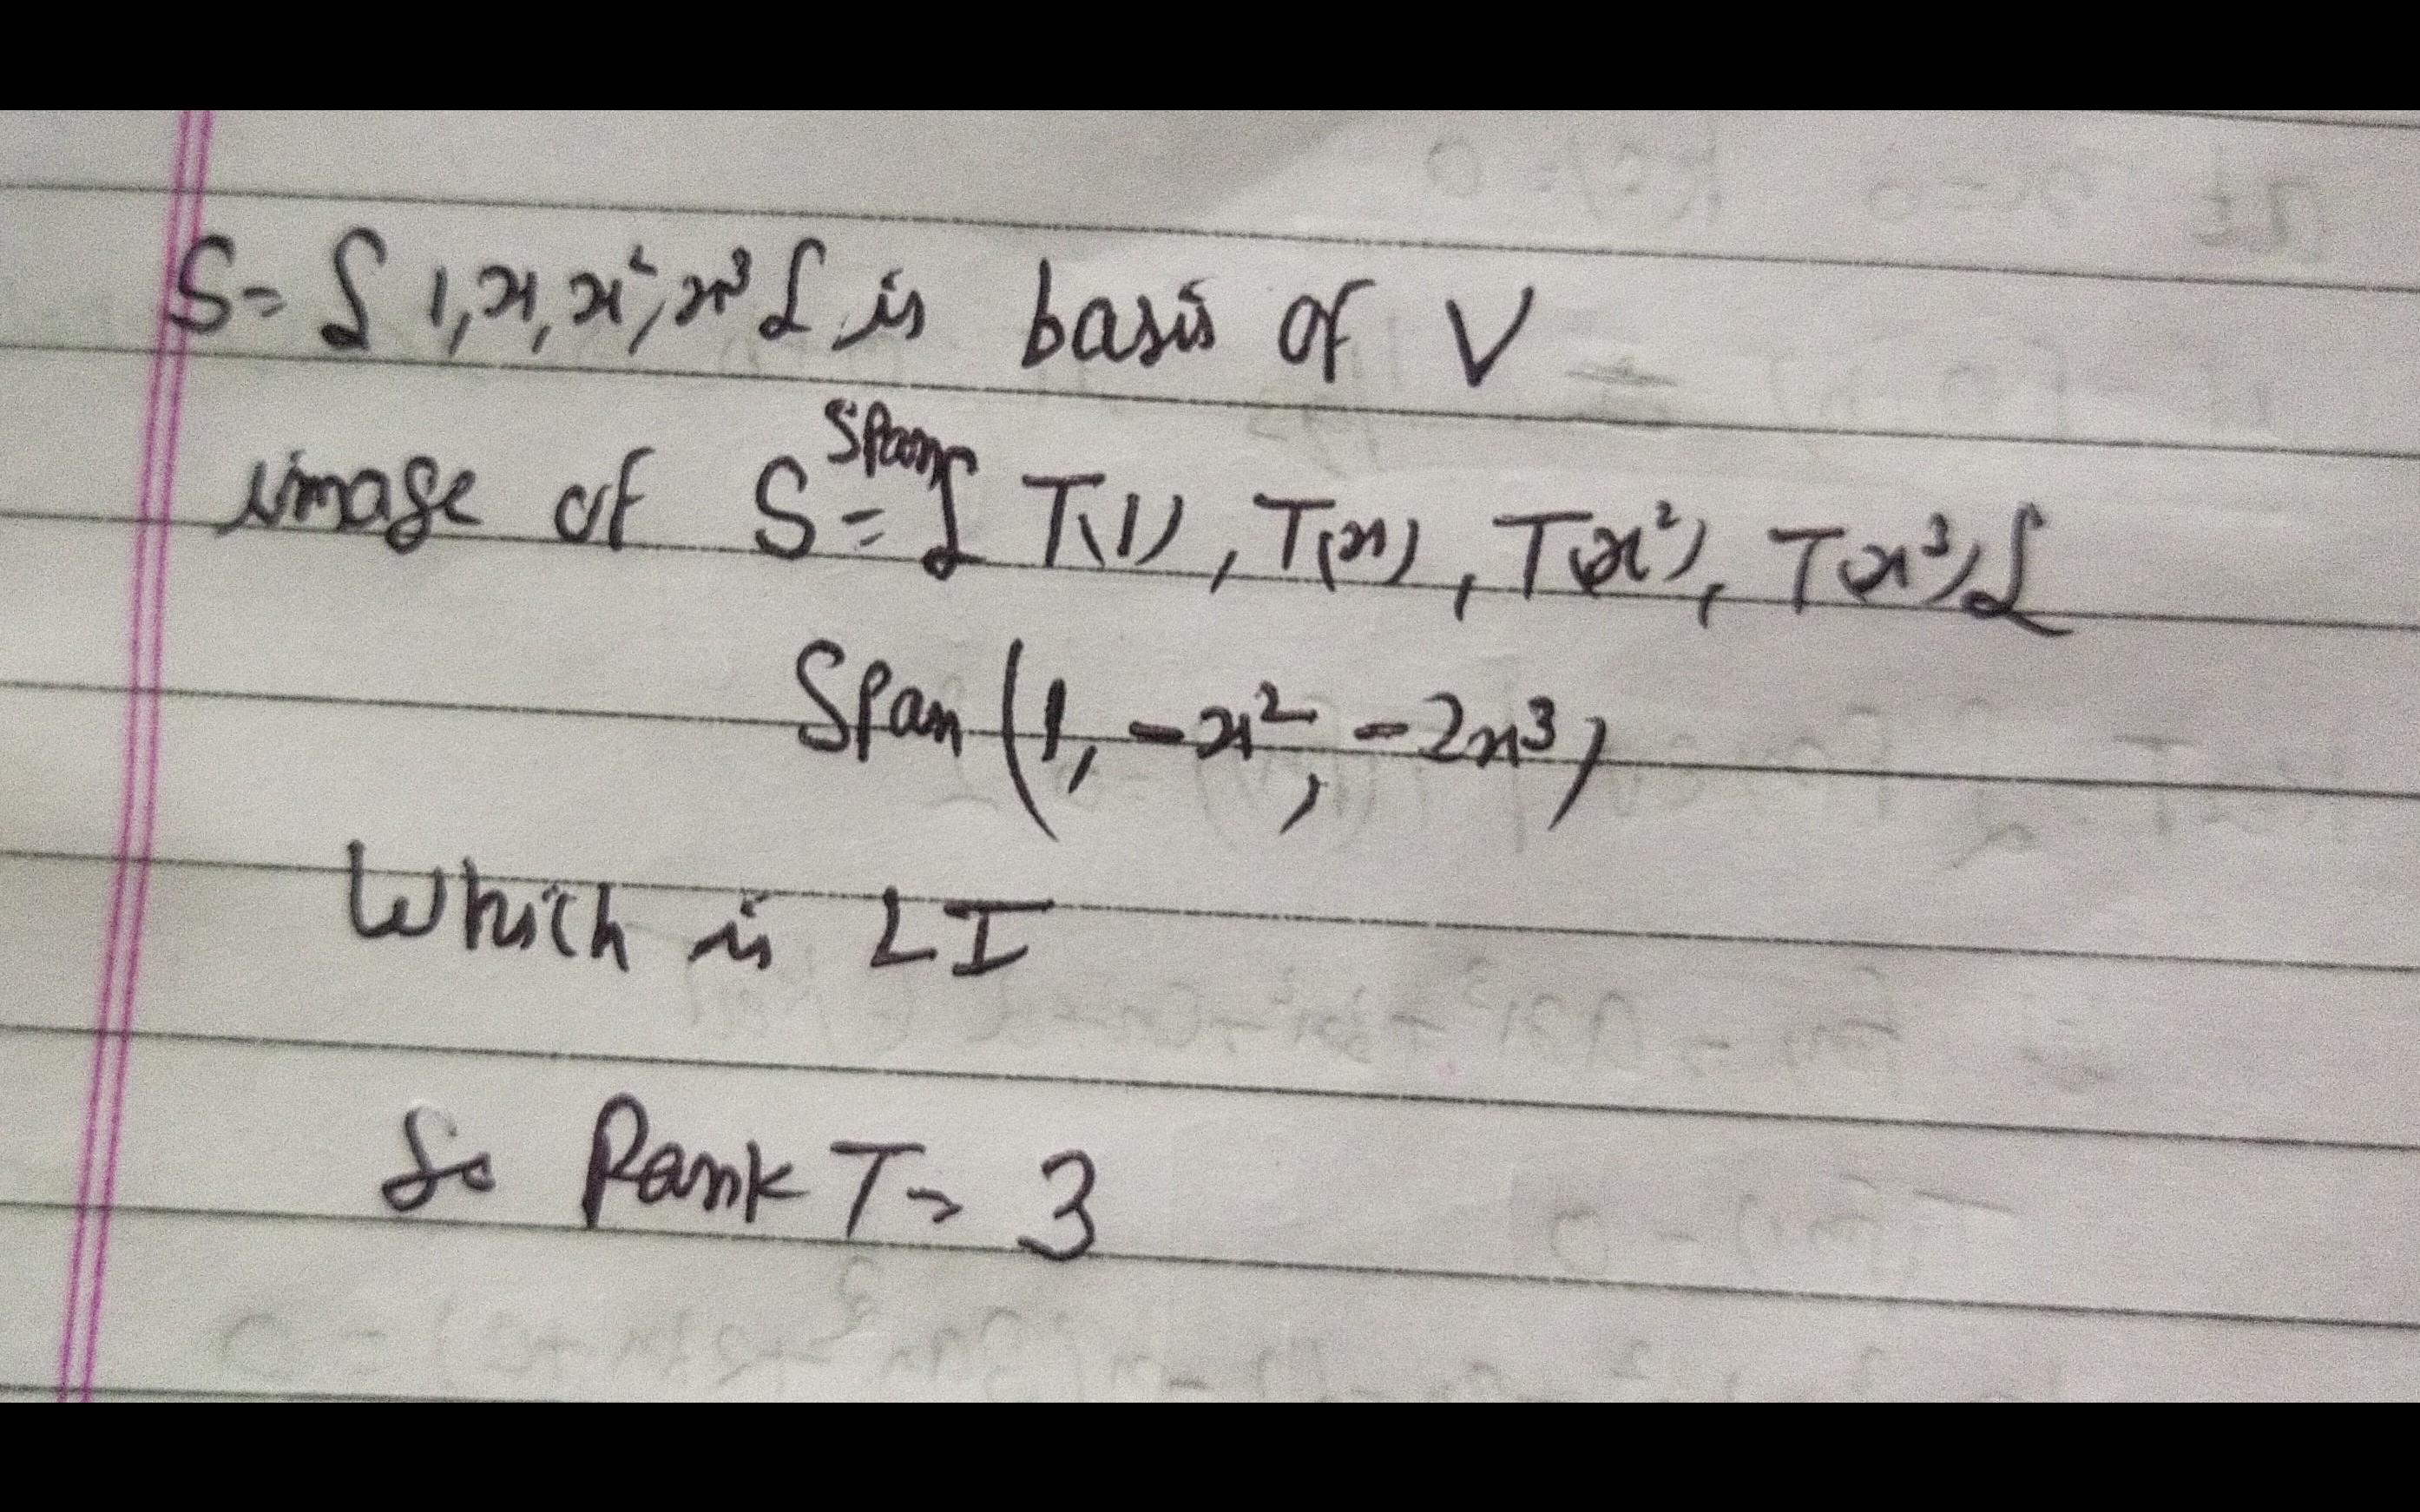 S = { 1, x, x², x³ } is basis of V
image of S = Span { T(1), T(x), T(x²), T(x³) }
Span (1, -x², -2x³)
Which is LI
So Rank T = 3